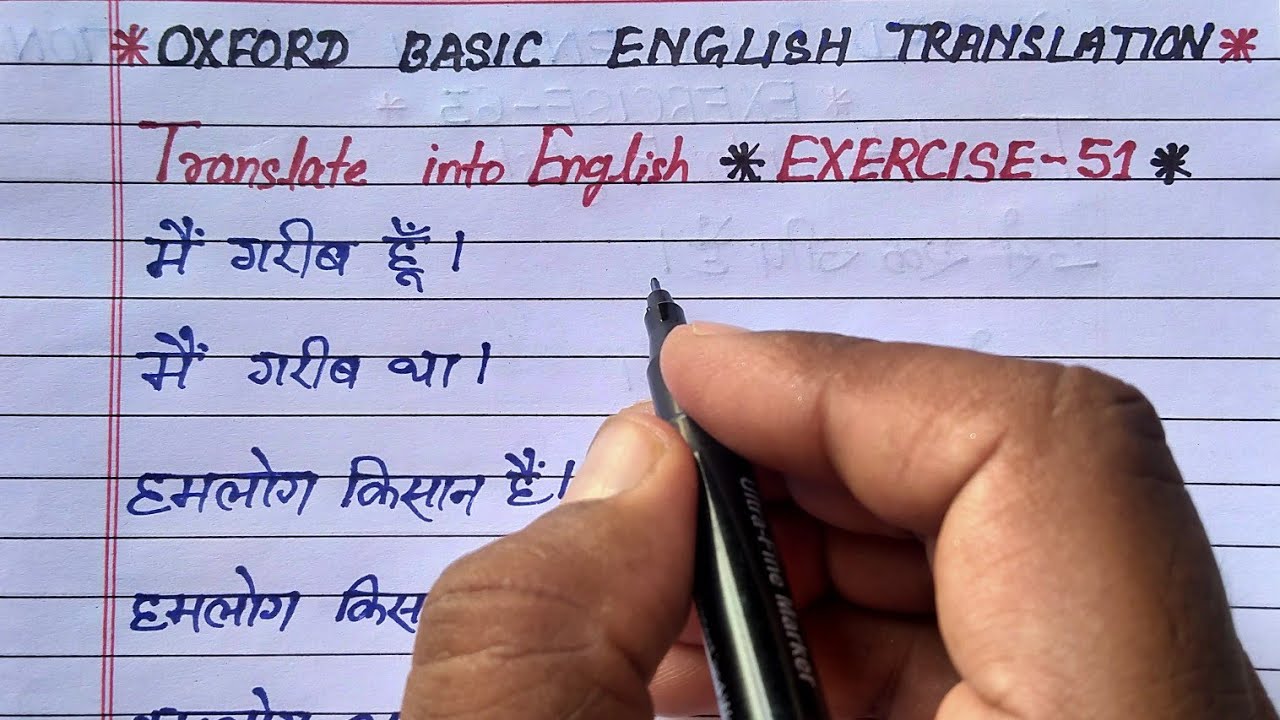 *OXFORD BASIC ENGLISH TRANSLATION*
Translate into English * EXERCISE-51 *
मैं गरीब हूँ।
मैं गरीब था।
हमलोग किसान हैं।
हमलोग
हमलोग
Ultra-Fine Marker